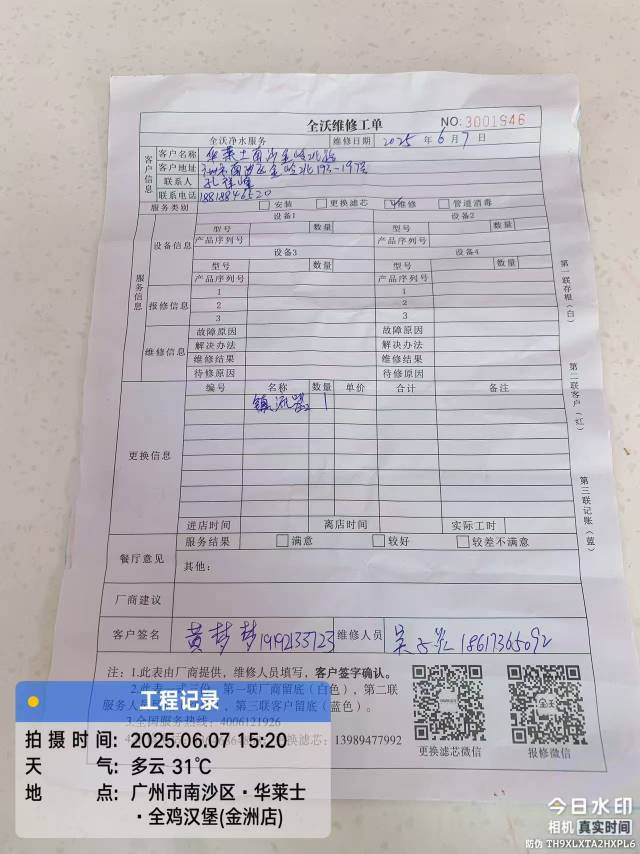 全沃维修工单
NO:3001946
全沃净水服务 维修日期 2025 年 6 月 7 日
客户信息
客户名称 华莱士南沙金岭北路
客户地址 金岭北193-197号
联系人
联系电话 18818846520
服务类别 安装 更换滤芯 维修 管道消毒
服务信息
设备信息
设备1 设备2
型号 数量 型号 数量
产品序列号 产品序列号
设备3 设备4
型号 数量 型号 数量
产品序列号 产品序列号
报修信息
1 1
2 2
3 3
维修信息
故障原因 故障原因
解决办法 解决办法
维修结果 维修结果
待修原因 待修原因
更换信息
编号 名称 数量 单价 合计 备注
镇流器 1
进店时间 离店时间 实际工时
餐厅意见
服务结果 满意 较好 较差不满意
其他:
厂商建议
客户签名 黄梦梦19192133723 维修人员 18617365092
注:1.此表由厂商提供,维修人员填写,客户签字确认。
2.此表一式三份,第一联厂商留底(白色),第二联
服务人 第三联客户留底(蓝色)。
3.全国服务热线:4006121926
换滤芯:13989477992
更换滤芯微信
报修微信
第一联存根(白)
第二联客户(红)
第三联记账(蓝)
工程记录
拍摄时间:2025.06.07 15:20
天气:多云 31℃
地点:广州市南沙区·华莱士
·全鸡汉堡(金洲店)
今日水印
相机 真实时间
防伪 TH9XLXTA2HXPL6